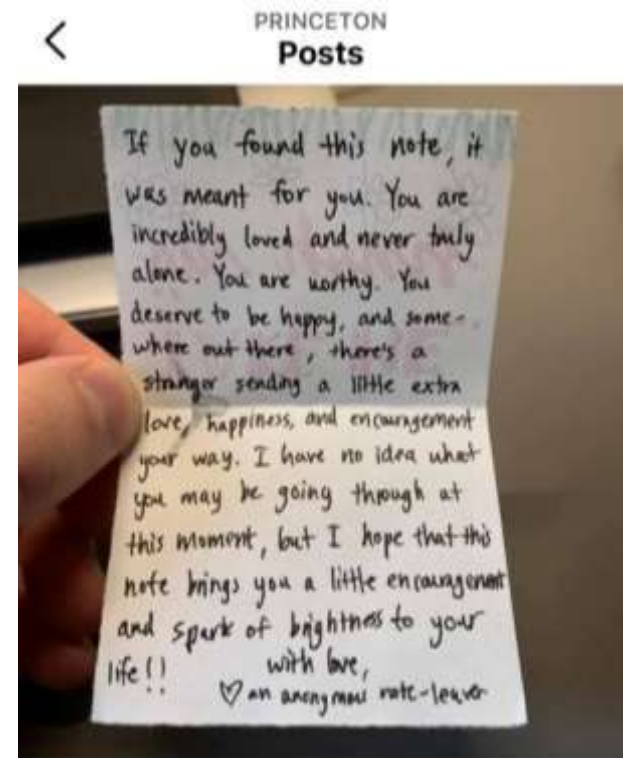 PRINCETON
Posts
If you found this note, it
was meant for you. You are
incredibly loved and never truly
alone. You are worthy. You
deserve to be happy, and some-
where out there, there's a
stranger sending a little extra
love, happiness, and encouragement
your way. I have no idea what
you may be going through at
this moment, but I hope that this
note brings you a little encouragement
and spark of brightness to your
life!!
with love,
♡ an anonymous note-leaver